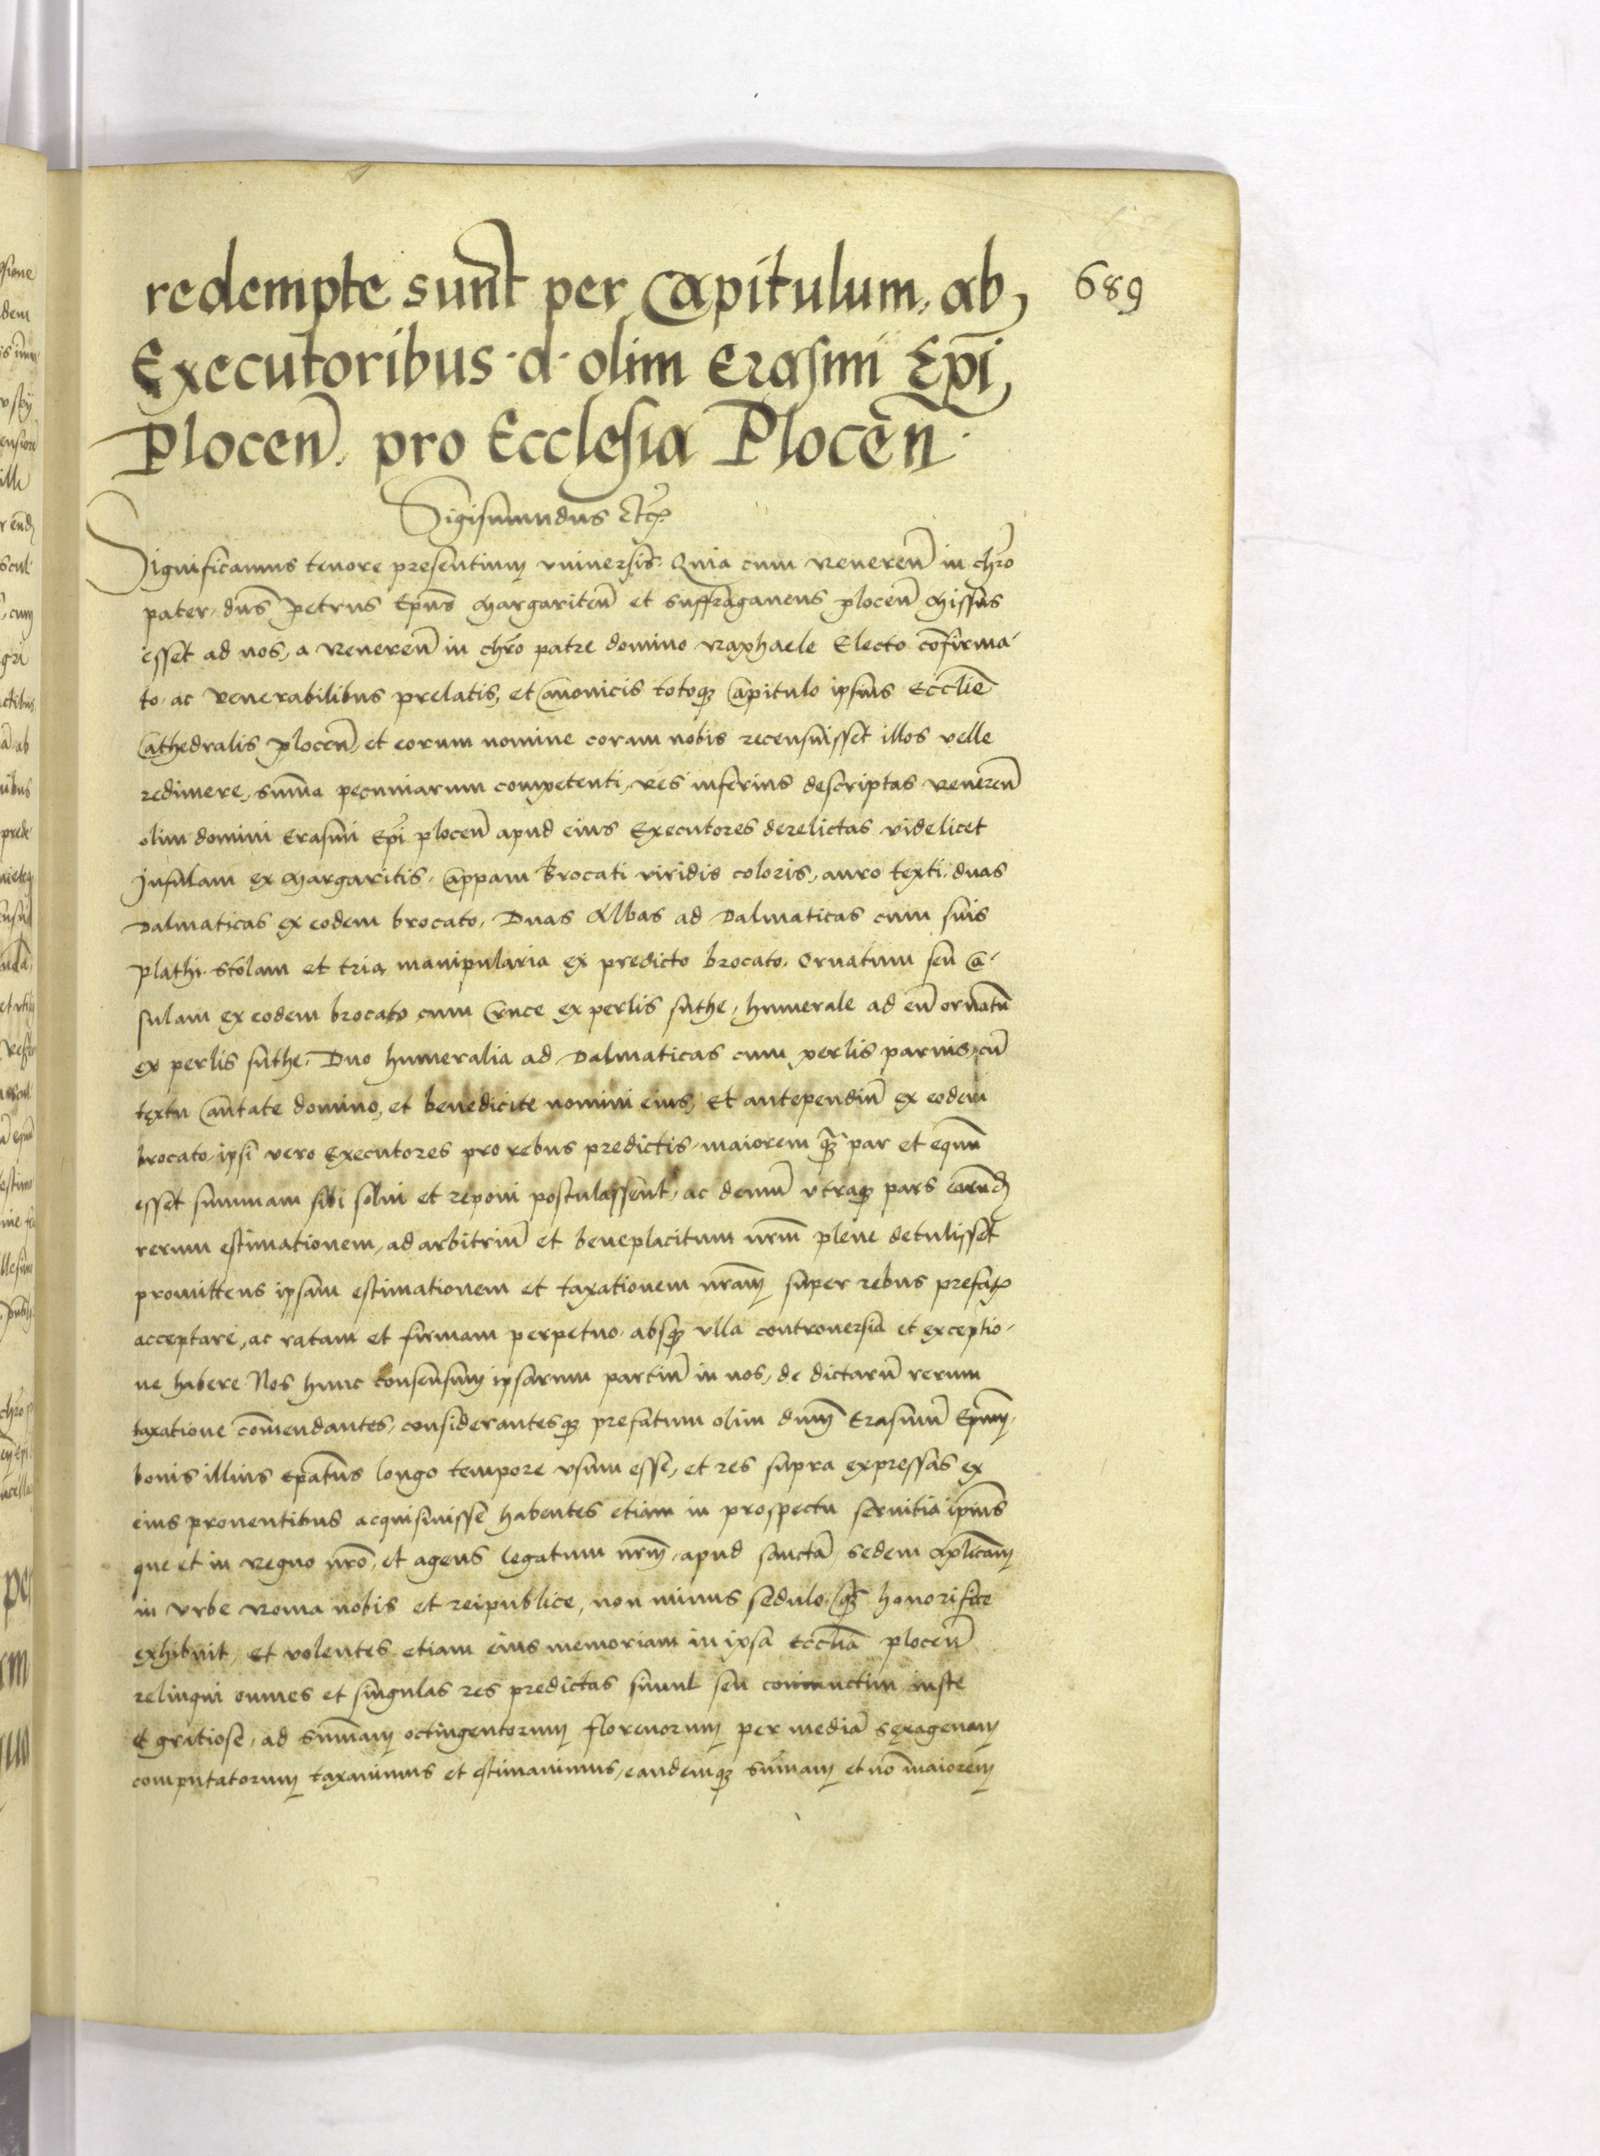 redempte sunt per Capitulum, ab 689
Executoribus · d · olim Erasmi Epi
Plocen. pro Ecclesia Plocen
Sigismundus Etc
Significamus tenore presentium vniuersis. Quia cum Reueren in chro
pater, dns Petrus Epus Margariten et suffraganeus plocen Missus
esset ad nos, a Reueren in chro patre domino Raphaele Electo cofirma-
to ac Venerabilibus prelatis, et Canonicis totoq Capitulo ipsius Ecclie
Cathedralis plocen, et eorum nomine coram nobis recensuisset illos velle
redimere, summa pecuniarum competenti, res inferius descriptas Reueren
olim domini Erasmi Epi plocen apud eius Executores derelictas videlicet
Infulam ex Margaritis, Cappam Brocati viridis coloris, auro texti, duas
Dalmaticas ex eodem brocato, Duas Albas ad Dalmaticas cum suis
plathi. Stolam et tria manipularia ex predicto brocato. Ornatum seu Ca-
sulam ex eodem brocato cum Cruce ex perlis suthe, humerale ad eu ornatu
ex perlis suthe. Duo humeralia ad Dalmaticas cum perlis paruis, cu
textu Cantate domino, et benedicite nomini eius, Et antependiu ex eodem
brocato, ipsi vero Executores pro rebus predictis, maiorem q par et equu
esset summam sibi solui et reponi postulassent, ac demu vtraq pars earud
rerum estimationem, ad arbitriu et beneplacitum nrm plene detulisset
promittens ipsam estimationem et taxationem nram super rebus prefatis
acceptare, ac ratam et firmam perpetuo absq vlla controuersia et exceptio-
ne habere. Nos hunc consensum ipsarum partiu in nos, de dictaru rerum
taxatione comendantes, considerantesq prefatum olim dnm Erasmu Epum,
bonis illius Epatus longo tempore vsum esse, et res supra expressas ex
eius prouentibus acquisiuisse habentes etiam in prospectu seruitia ipsius
que et in Regno nro, et agens legatum nrm, apud sancta sedem Aplicam
in vrbe Roma nobis et reipublice, non minus sedulo, q honorifice
exhibuit, et volentes etiam eius memoriam in ipsa Ecclia plocen
relinqui omnes et singulas res predictas simul seu coniunctim iuste
et gratiose, ad sumam octingentorum florenorum per media sexagenam
computatorum taxauimus et estimauimus, eandemq sumam et no maiorem